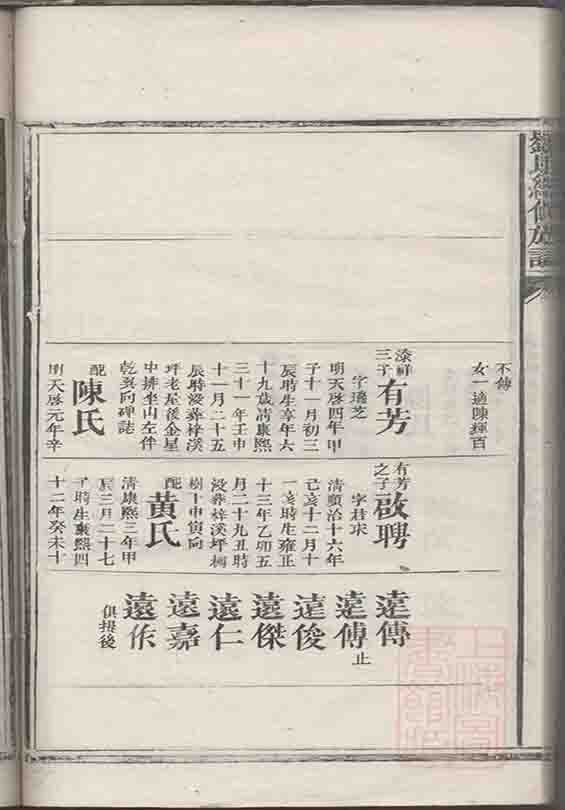 不傳
女一適陳輝百
三子
有芳
字瑤芝
明天啓四年甲
子十一月初三
辰時生享年六
十九歲清康熙
三十一年壬申
十一月二十五
辰時歿葬梓溪
坪老屋後金星
中排坐山左伴
乾巽向碑誌
配
陳氏
明天啓元年辛
有芳
之子
啟聘
清順治十六年
己亥十二月十
一亥時生雍正
十三年乙卯五
月二十九丑時
歿葬梓溪坪橺
樹下申寅向
配
黃氏
清康熙三年甲
辰三月二十七
子時生康熙四
十二年癸未十
遠傳
遠傅
止
遠俊
遠傑
遠仁
遠嘉
遠作
俱提後